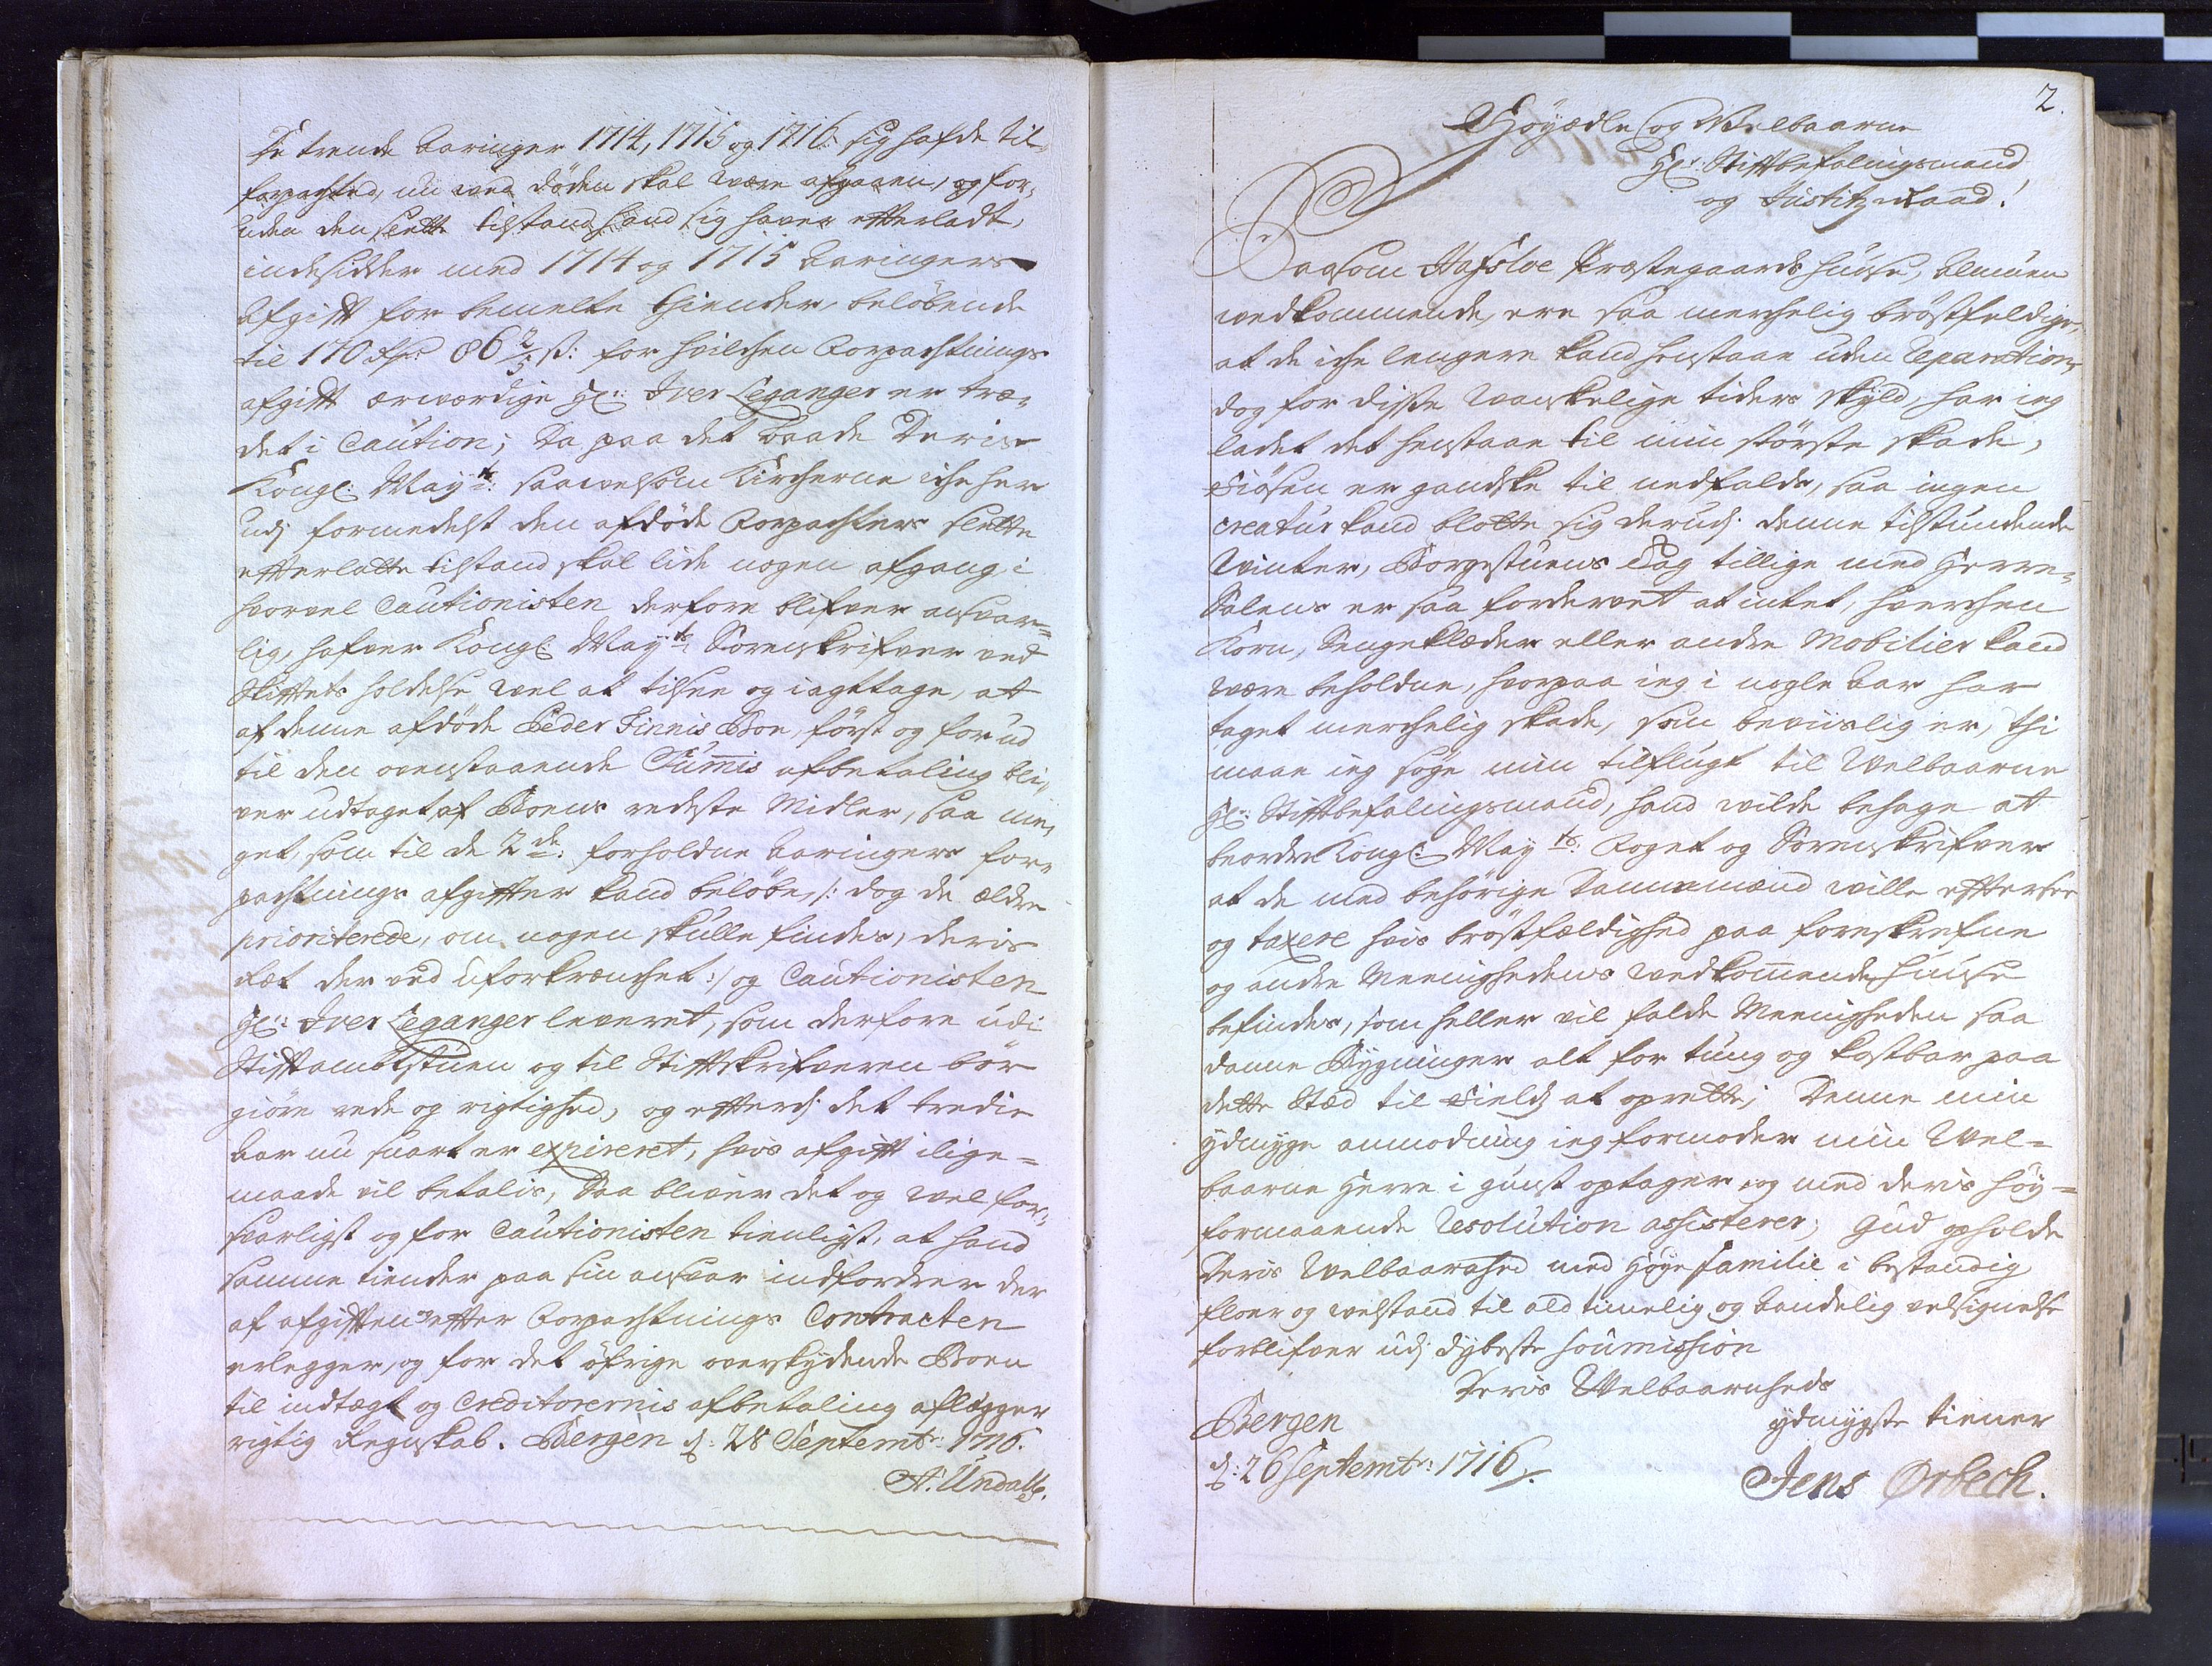 De trende Aaringer 1714, 1715 og 1716. sig hafde til¬
forpachted, nu ved döden skal være afgaaen, og for¬
uden den slette tilstand hand sig haver efterladt,
indesidder med 1714 og 1715 Aaringers
Afgift for bemelte thiender, beløbende
til 170 Rdr 86 2/5 ß: for hvilchen Forpachtnings
afgift ærværdige Hr: Iver Leganger er træ¬
det i Caution; Da paa det baade Deris
Kongl: Mayts: saavelsom Kircherne iche her
udj formedelst den afdøde Forpachters slette
efterlatte tilstand skal lide nogen afgang, i
hvorvel Cautionisten derfore blifver ansvar¬
lig, hafver Kongl: Mayts Sorenskrifver ved
Skiftets holdelse vel at tilsee og iagttage, at
af denne afdøde Peder Finnis Boe, först og forud
til den ovenstaaende Sum̄is afbetaling bli¬
ver udtaget af Boens redeste Midler, saa me¬
get, som til de 2de: forholdne Aaringers for¬
pachtnings afgifter kand beløbe, /: dog de ældre
prioriterede, om nogen skulle findes, deris
Ræt der ved uforkrænchet :/ og Cautionisten
Hr: Iver Leganger leveret, som derfore udi
Stiftambtstuen og til Stiftskrifveren bör
giöre rede og rigtighed, og efterdj det tredie
Aar nu snart er expireret, hvis afgift i lige¬
maade vil betalis, Saa bliver det og vel for¬
svarligst og for Cautionisten tienligst, at hand
samme tiender paa sin ansvar indfordrer der
af afgiften efter Forpachtnings Contracten
erlegger, og for det öfrige overskydende Boen
til indtægt og Creditorernis afbetaling aflægger
rigtig Regnskab. Bergen d: 28 Septembr: 1716.
A: Undall.
2.
Höyædle og Velbaarne
Hr: Stiftbefalingsmand
og Justitz Raad!
Saasom Hafsloe Præstegaards Huuse, Almuen
vedkommende, ere saa merchelig bröstfeldige,
at de iche lengere kand henstaae uden Reparation,
dog for disse vanskelige tiders skyld, har ieg
ladet det henstaae til min störste skade,
Fiösen er gandske til nedfalds, saa ingen
creatur kand blotte sig derudj denne tilstundende
Vinter, Borgestuens Tag tillige med Herre¬
Salens er saa fordervet at intet, hverchen
Korn, Sengeklæder eller andre Mobilier kand
være beholdne, hvorpaa ieg i nogle Aar har
taget merchelig skade, som beviislig er, thi
maae ieg søge min tilflugt til Velbaarne
Hr: Stiftbefalingsmand, hand vilde behage at
beordre Kongl: Mayts: Foget og Sorenskrifver
at de med behörige Dannemænd ville eftersee
og taxere hvis bröstfældighed paa foreskrefne
og andre Meenighedens vedkom̄ende Huuse
befindes, som heller vil falde Meenigheden saa
danne Bygninger alt for tung og kostbar paa
dette Stæd til Fields at oprette; Denne min
ydmyge anmodning ieg formoder min Vel¬
baarne Herre i gunst optager, og med deris höy¬
formaaende Resolution assisterer; Gud opholde
Deris Velbaarenhed med Höye familie i bestandig
floer og velstand til ald timelig og aandelig velsignelse
forblifver udj dybeste soumission
Deris Velbaarenheds
ydmygste tiener
Bergen
d: 26 Septembr: 1716.
Jens Ørbech.